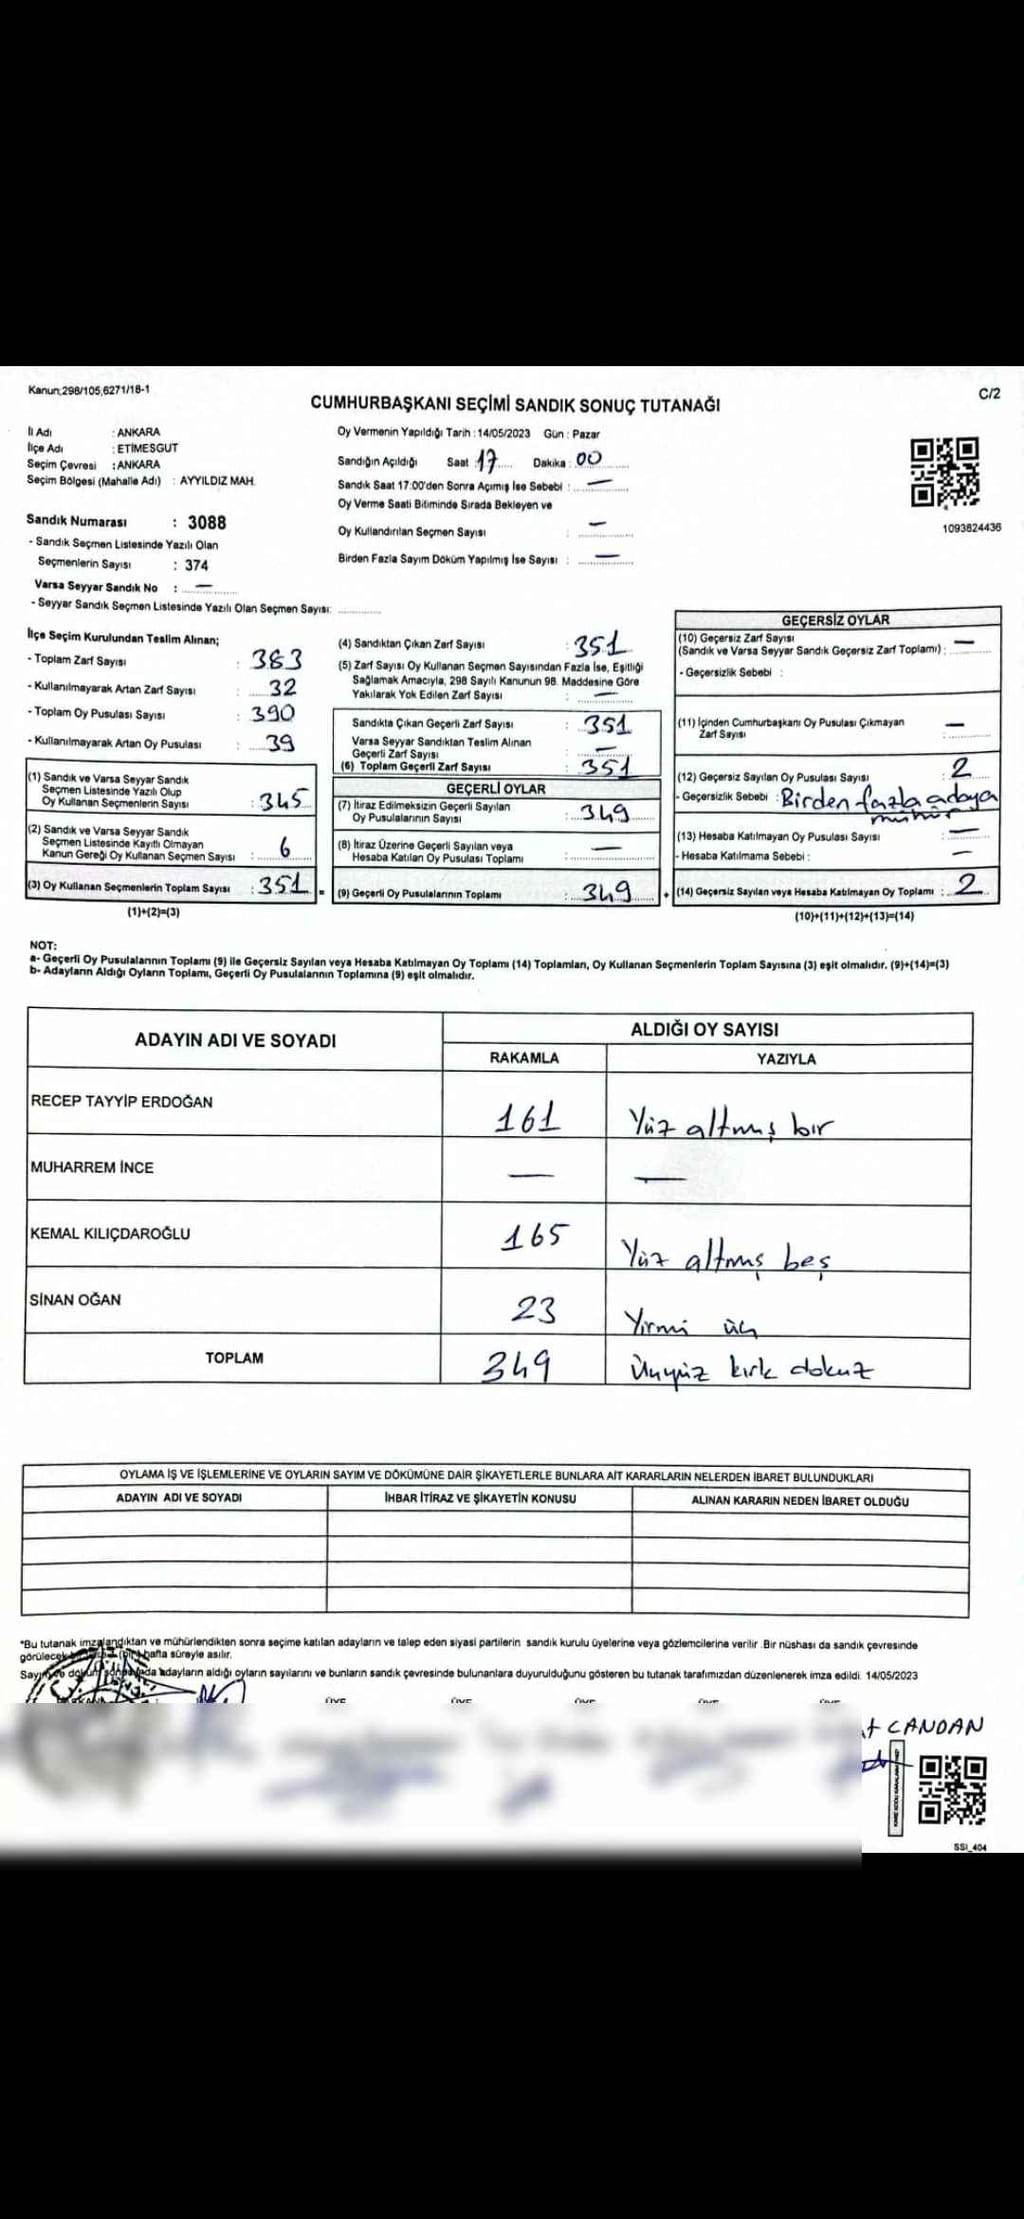 Kanun;298/105,6271/18-1
C/2
CUMHURBAŞKANI SEÇİMİ SANDIK SONUÇ TUTANAĞI
İl Adı : ANKARA
İlçe Adı : ETİMESGUT
Seçim Çevresi : ANKARA
Seçim Bölgesi (Mahalle Adı) : AYYILDIZ MAH.
Sandık Numarası : 3088
- Sandık Seçmen Listesinde Yazılı Olan
Seçmenlerin Sayısı : 374
Varsa Seyyar Sandık No : —
- Seyyar Sandık Seçmen Listesinde Yazılı Olan Seçmen Sayısı:
Oy Vermenin Yapıldığı Tarih : 14/05/2023 Gün : Pazar
Sandığın Açıldığı Saat : 17 Dakika : 00
Sandık Saat 17:00'den Sonra Açımış İse Sebebi : —
Oy Verme Saati Bitiminde Sırada Bekleyen ve
Oy Kullandırılan Seçmen Sayısı : —
Birden Fazla Sayım Döküm Yapılmış İse Sayısı : —
1093824436
İlçe Seçim Kurulundan Teslim Alınan;
- Toplam Zarf Sayısı : 383
- Kullanılmayarak Artan Zarf Sayısı : 32
- Toplam Oy Pusulası Sayısı : 390
- Kullanılmayarak Artan Oy Pusulası : 39
(1) Sandık ve Varsa Seyyar Sandık
Seçmen Listesinde Yazılı Olup
Oy Kullanan Seçmenlerin Sayısı : 345
(2) Sandık ve Varsa Seyyar Sandık
Seçmen Listesinde Kayıtlı Olmayan
Kanun Gereği Oy Kullanan Seçmen Sayısı : 6
(3) Oy Kullanan Seçmenlerin Toplam Sayısı : 351 =
(1)+(2)=(3)
(4) Sandıktan Çıkan Zarf Sayısı : 351
(5) Zarf Sayısı Oy Kullanan Seçmen Sayısından Fazla İse, Eşitliği
Sağlamak Amacıyla, 298 Sayılı Kanunun 98. Maddesine Göre
Yakılarak Yok Edilen Zarf Sayısı : —
Sandıkta Çıkan Geçerli Zarf Sayısı : 351
Varsa Seyyar Sandıktan Teslim Alınan
Geçerli Zarf Sayısı : —
(6) Toplam Geçerli Zarf Sayısı : 351
GEÇERLİ OYLAR
(7) İtiraz Edilmeksizin Geçerli Sayılan
Oy Pusulalarının Sayısı : 349
(8) İtiraz Üzerine Geçerli Sayılan veya
Hesaba Katılan Oy Pusulası Toplamı : —
(9) Geçerli Oy Pusulalarının Toplamı : 349 +
GEÇERSİZ OYLAR
(10) Geçersiz Zarf Sayısı
(Sandık ve Varsa Seyyar Sandık Geçersiz Zarf Toplamı) : —
- Geçersizlik Sebebi :
(11) İçinden Cumhurbaşkanı Oy Pusulası Çıkmayan
Zarf Sayısı : —
(12) Geçersiz Sayılan Oy Pusulası Sayısı : 2
- Geçersizlik Sebebi : Birden fazla adaya
mühür
(13) Hesaba Katılmayan Oy Pusulası Sayısı : —
- Hesaba Katılmama Sebebi : —
(14) Geçersiz Sayılan veya Hesaba Katılmayan Oy Toplamı : 2
(10)+(11)+(12)+(13)=(14)
NOT:
a- Geçerli Oy Pusulalarının Toplamı (9) ile Geçersiz Sayılan veya Hesaba Katılmayan Oy Toplamı (14) Toplamları, Oy Kullanan Seçmenlerin Toplam Sayısına (3) eşit olmalıdır. (9)+(14)=(3)
b- Adayların Aldığı Oyların Toplamı, Geçerli Oy Pusulalarının Toplamına (9) eşit olmalıdır.
ADAYIN ADI VE SOYADI
ALDIĞI OY SAYISI
RAKAMLA YAZIYLA
RECEP TAYYİP ERDOĞAN 161 Yüz altmış bir
MUHARREM İNCE — —
KEMAL KILIÇDAROĞLU 165 Yüz altmış beş
SİNAN OĞAN 23 Yirmi üç
TOPLAM 349 Üçyüz kırk dokuz
OYLAMA İŞ VE İŞLEMLERİNE VE OYLARIN SAYIM VE DÖKÜMÜNE DAİR ŞİKAYETLERLE BUNLARA AİT KARARLARIN NELERDEN İBARET BULUNDUKLARI
ADAYIN ADI VE SOYADI İHBAR İTİRAZ VE ŞİKAYETİN KONUSU ALINAN KARARIN NEDEN İBARET OLDUĞU
*Bu tutanak imzalandıktan ve mühürlendikten sonra seçime katılan adayların ve talep eden siyasi partilerin sandık kurulu üyelerine veya gözlemcilerine verilir .Bir nüshası da sandık çevresinde
görülecek bir yere (bir) hafta süreyle asılır.
Sayım ve döküm sonunda adayların aldığı oyların sayılarını ve bunların sandık çevresinde bulunanlara duyurulduğunu gösteren bu tutanak tarafımızdan düzenlenerek imza edildi. 14/05/2023
ÜYE ÜYE ÜYE ÜYE ÜYE
CANDAN
SSI_404